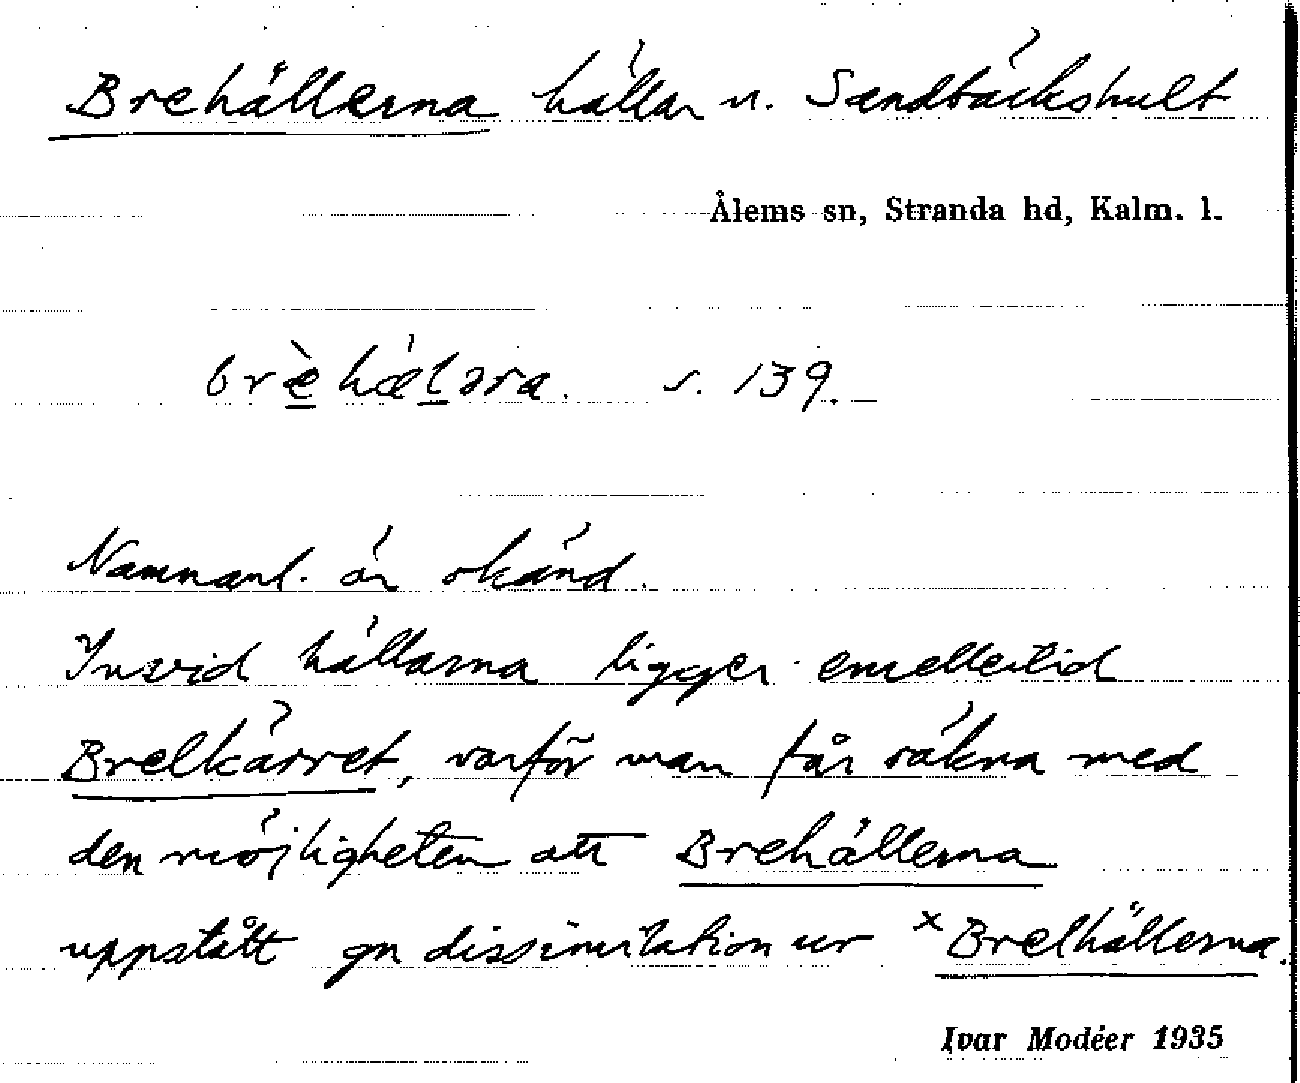 Brehällerna hällar n. Sandbäckshult
Ålems sn, Stranda hd, Kalm. l.
bræ̀hæl̠əra. s. 139.
Namnanl. är okänd.
Invid hällarna ligger emellertid
Brelkärret, varför man får räkna med
den möjligheten att Brehällerna
uppstått gn dissimilation ur ×Brelhällerna.
Ivar Modéer 1935